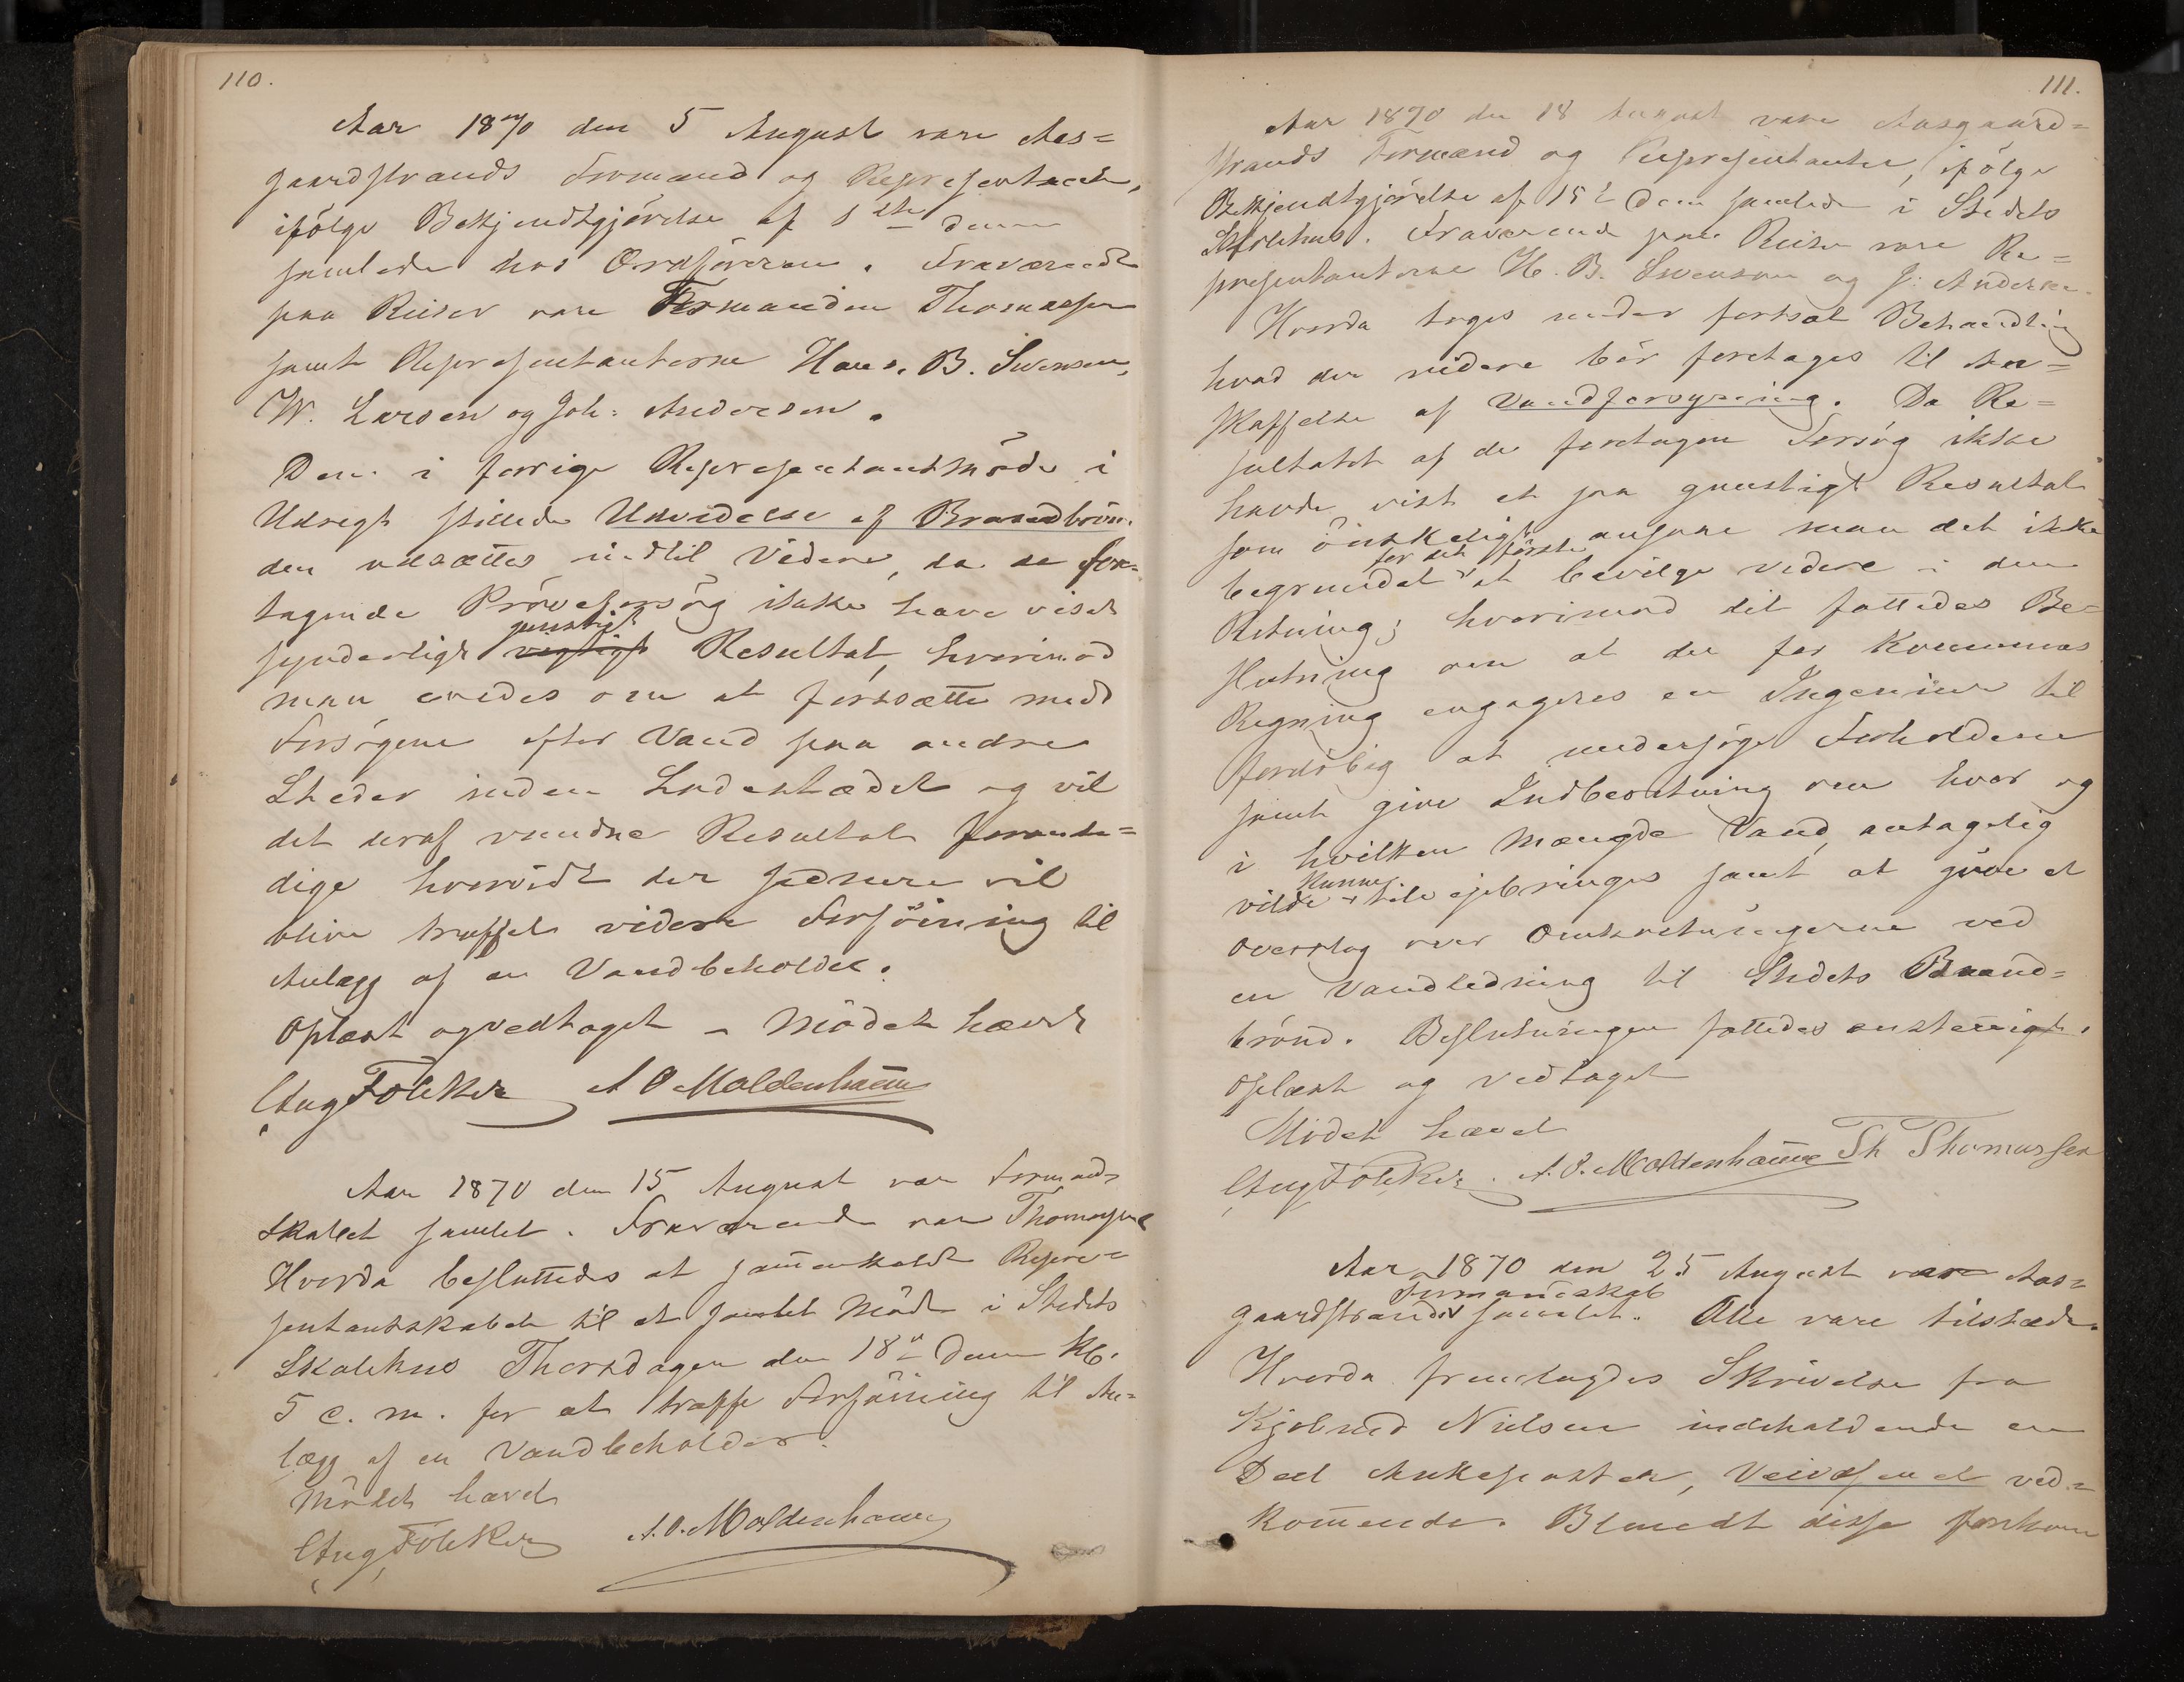 110.
Aar 1870 den 5 August vare Aas=
gaardstrands Formænd og Repræsentanter,
ifölge Bekjendtgjörelse af 1ste dennes
samlede hos Ordföreren. Fraværende
paa Reiser vare Formanden Thomassen
samt Repræsentanterne Hans B. Svensen,
W. Larsen og Joh: Andersen.
Den i forrige Repræsentantmöde i
Udsigt stillede Udvidelse af Brandbrön-
den udsættes indtil Videre, da de fore-
tagende Pröveforsög ikke have viist
gunstigt
synderligt vigtigt Resultat, hvorimod
man enedes om at fortsætte med
Forsögene efter Vand paa andre
Steder inden Ladestædet og vil
det deraf vundne Resultat
dige hvorvidt der sednere vil
blive truffet videre Forföining til
Anlægg af en Vandbeholder.
Oplæst og vedtaget – Mödet hævet
Aug Fölcker A O Moldenhauer
Aar 1870 den 15 August var Formand-
skabet samlet. Fraværende var Thomassen
Hvorda besluttedes at sammenkalde Repræ-
sentantskabet til et samlet Möde i Stedets
Skolehus Thorsdagen den 18de dennes Kl.
5 e. m. for at træffe Forföining til An-
lægg af en Vandbeholder.
Mödet hævet
Aug Fölcker A. O. Moldenhauer
111.
Aar 1870 den 18 August vare Aasgaard=
strands Formænd og Repræsentanter, ifölge
Bekjendtgjörelse af 15de dennes samlede i Stedets
Skolehus. Fraværende paa Reiser vare Re=
præsentanterne H. B. Svensen og J: Andersen.
Hvorda toges under fortsat Behandling
hvad der videre bör foretages til An=
skaffelse af Vandforsyning. Da Re=
sultatet af de foretagne Forsög ikke
havde vist et saa gunstigt Resultat
som önskeligt ansaae man det ikke
for det förste
begrundet at bevilge videre i den
Retning; hvorimod det fattedes Be-
slutning om at der for Kommunens
Regning engageres en Ingeniør til
forelöbig at undersöge Forholdene
samt give Indberetning om hvor og
i hvilken Mængde Vand antagelig
kunne
vilde tilvejebringes samt at give et
Overslag over Omkostningerne ved
en Vandledning til Stedets Brand=
brönd. Beslutningen fattedes enstemmigt.
Oplæst og vedtaget
Mödet hævet
Aug Fölcker. A. O. Moldenhauer Th Thomassen
Aar 1870 den 25 August var Aas=
Formandskab
gaardstrands samlet. Alle vare tilstæde.
Hvorda fremlagdes Skrivelse fra
Kjöbmd Nielsen indeholdende en
Deel Ankeposter, Veivæsenet ved-
kommende. Blandt disse forekom